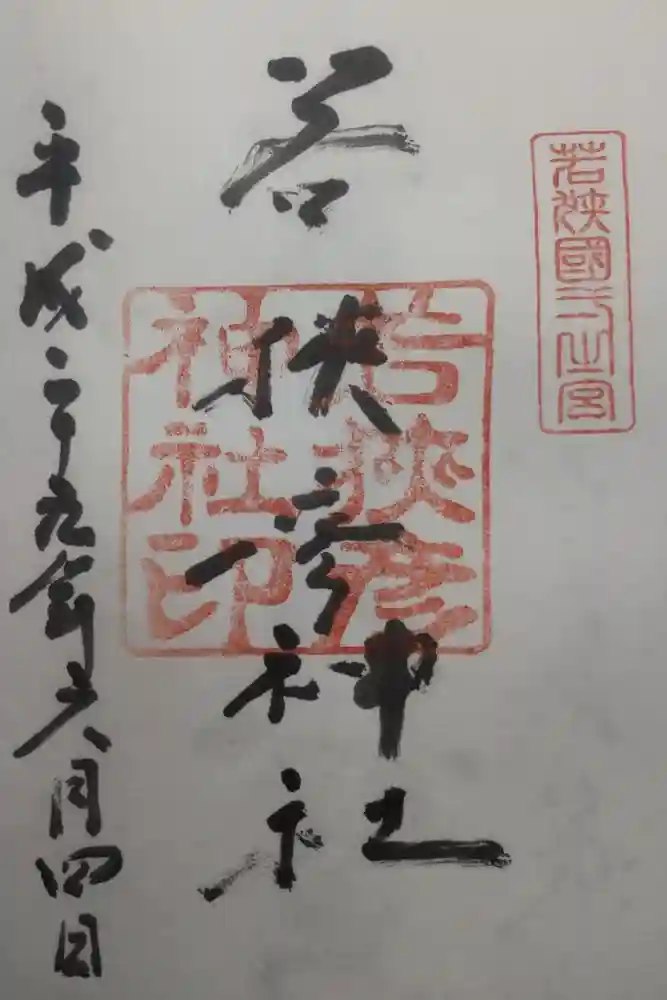 若狹國一之宮
若狭彦神社
若狹彦
神社印
平成二十九年六月四日